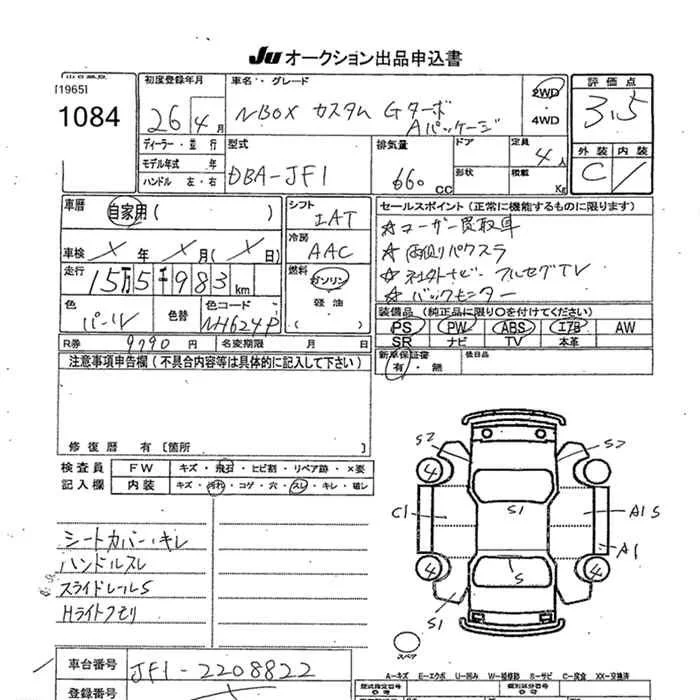 JU オークション出品申込書
[1965]
1084
初度登録年月
26年4月
車名・グレード
NBOX カスタム Gターボ
Aパッケージ
2WD
・
4WD
評価点
3.5
外装 内装
C
ディーラー・並行
モデル年式 年
ハンドル 左・右
型式
DBA-JF1
排気量
660 CC
ドア
形状
定員
4人
積載
Kg
車歴
自家用 ( )
車検 X年 X月(X日)
走行 15万5千983km
色
パール
色替
色コード
NH624P
シフト
IAT
冷房
AAC
燃料
ガソリン
軽油
セールスポイント (正常に機能するものに限ります)
☆ユーザー買取車
☆両側パワスラ
☆社外ナビ フルセグTV
☆バックモニター
装備品 (純正品に限り○を付けてください)
PS PW ABS エアB AW
SR ナビ TV 本革
R券 9790円 名変期限 月 日
新車保証書
有・無
後日品
注意事項申告欄 (不具合内容等は具体的に記入して下さい)
修復歴 有 [箇所 ]
検査員 FW キズ・飛石・ヒビ割・リペア跡・×要
記入欄 内装 キズ・汚れ・コゲ・穴・スレ・キレ・破レ
シートカバー・キレ
ハンドルスレ
スライドレールS
Hライトクモリ
S2 S2
4 4
C1 S1 A1S
A1
4 S 4
S1
スペア
車台番号 JF1-2208822
登録番号
A－キズ E－エクボ U－凹A W－補修跡 S－サビ C－腐食 XX－交換済
型式指定番号 類別区分番号